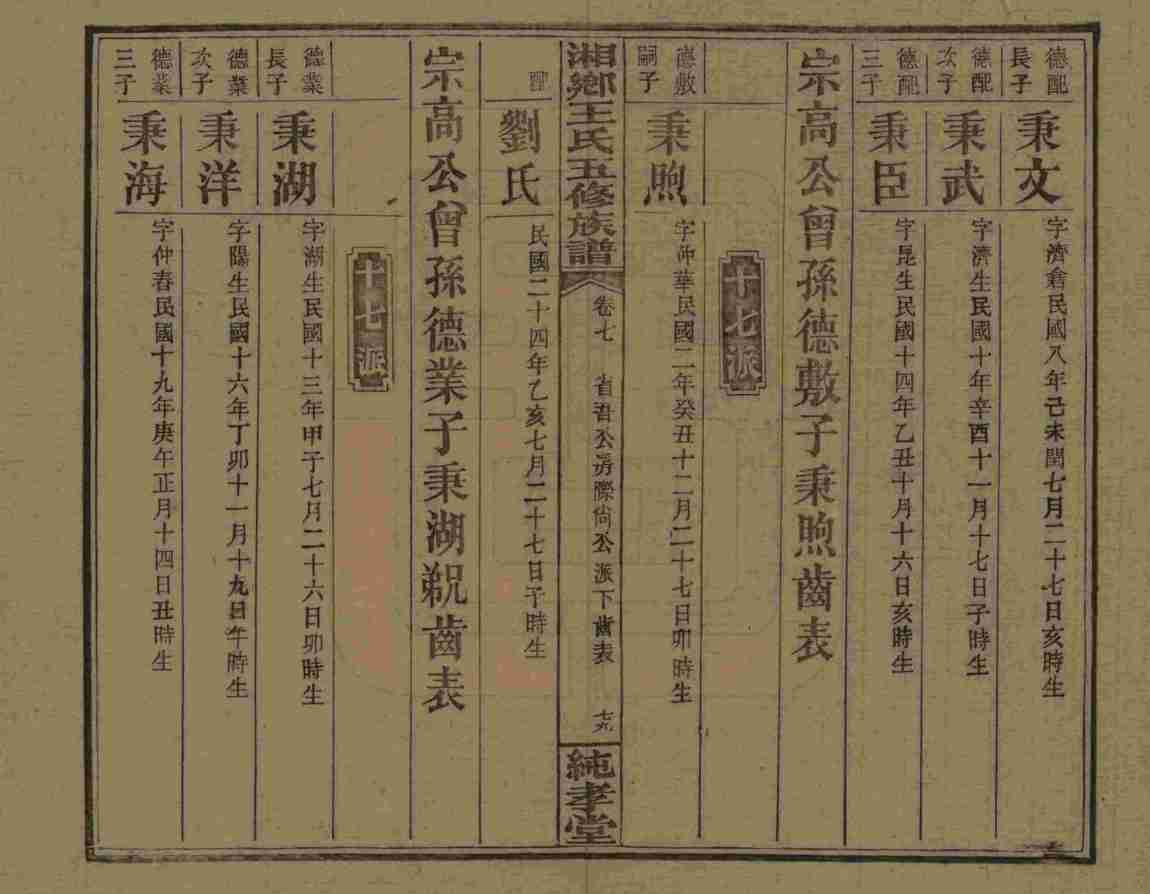 德配
長子
秉文
字濟倉民國八年己未閏七月二十七日亥時生
德配
次子
秉武
字濟生民國十年辛酉十一月十七日子時生
德配
三子
秉臣
字昆生民國十四年乙丑十月十六日亥時生
宗高公曾孫德敷子秉煦齒表
十七派
德敷
嗣子
秉煦
字仲華民國二年癸丑十二月二十七日卯時生
湘鄉王氏五修族譜
卷七
省吾公房際尙公派下齒表
七九
純孝堂
配
劉氏
民國二十四年乙亥七月二十七日子時生
宗高公曾孫德業子秉湖覜齒表
十七派
德業
長子
秉湖
字湖生民國十三年甲子七月二十六日卯時生
德業
次子
秉洋
字陽生民國十六年丁卯十一月十九日午時生
德業
三子
秉海
字仲春民國十九年庚午正月十四日丑時生